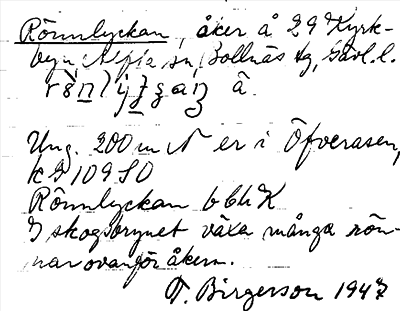 Rönnlyckan, åker å 29 Kyrk-
byn Alfta sn, Bollnäs tg, Gävl. l.
â.
Ung. 200 m N er i Öfverasen,
k 2 109 SO
Rönnlyckan b bli K
I skogsbrynet växa många rön-
nar ovanför åkern.
T. Birgerson 1947